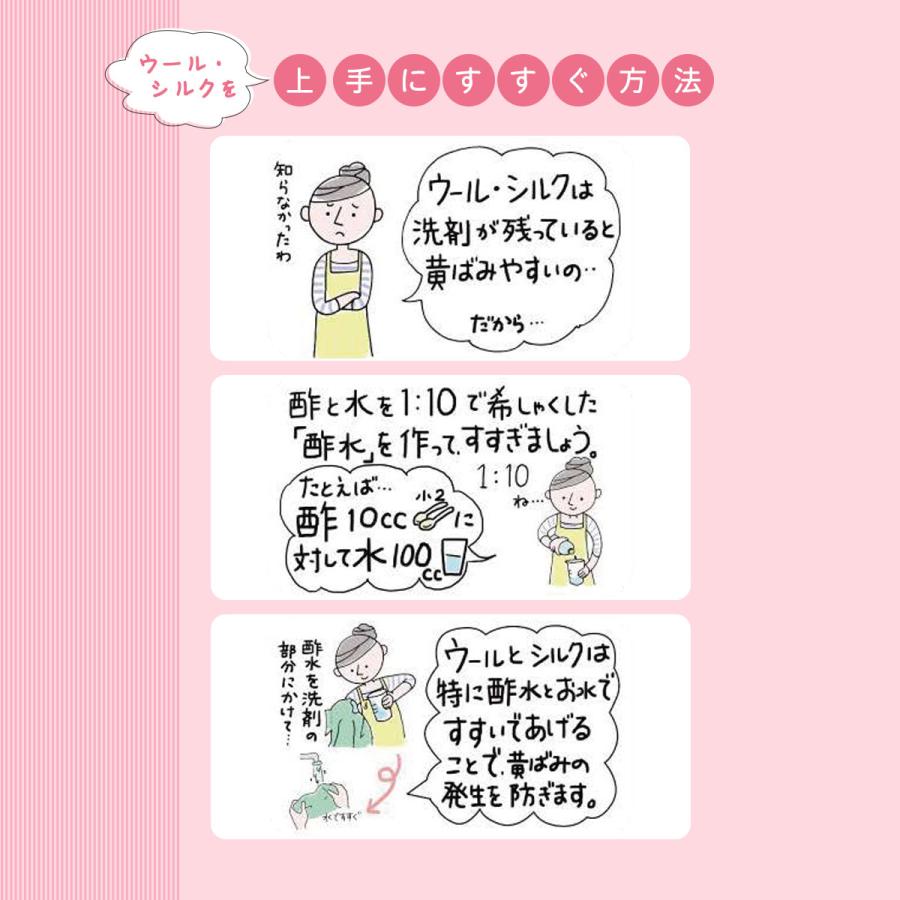 ウール・
シルクを
上手にすすぐ方法
知らなかったわ
ウール・シルクは
洗剤が残っていると
黄ばみやすいの‥
だから…
酢と水を1:10で希しゃくした
「酢水」を作って、すすぎましょう。
たとえば…
小2
酢10ccに
対して水100
cc
1:10
ね…
酢水を洗剤の
部分にかけて…
水ですすぐ
ウールとシルクは
特に酢水とお水で
すすいであげる
ことで、黄ばみの
発生を防ぎます。